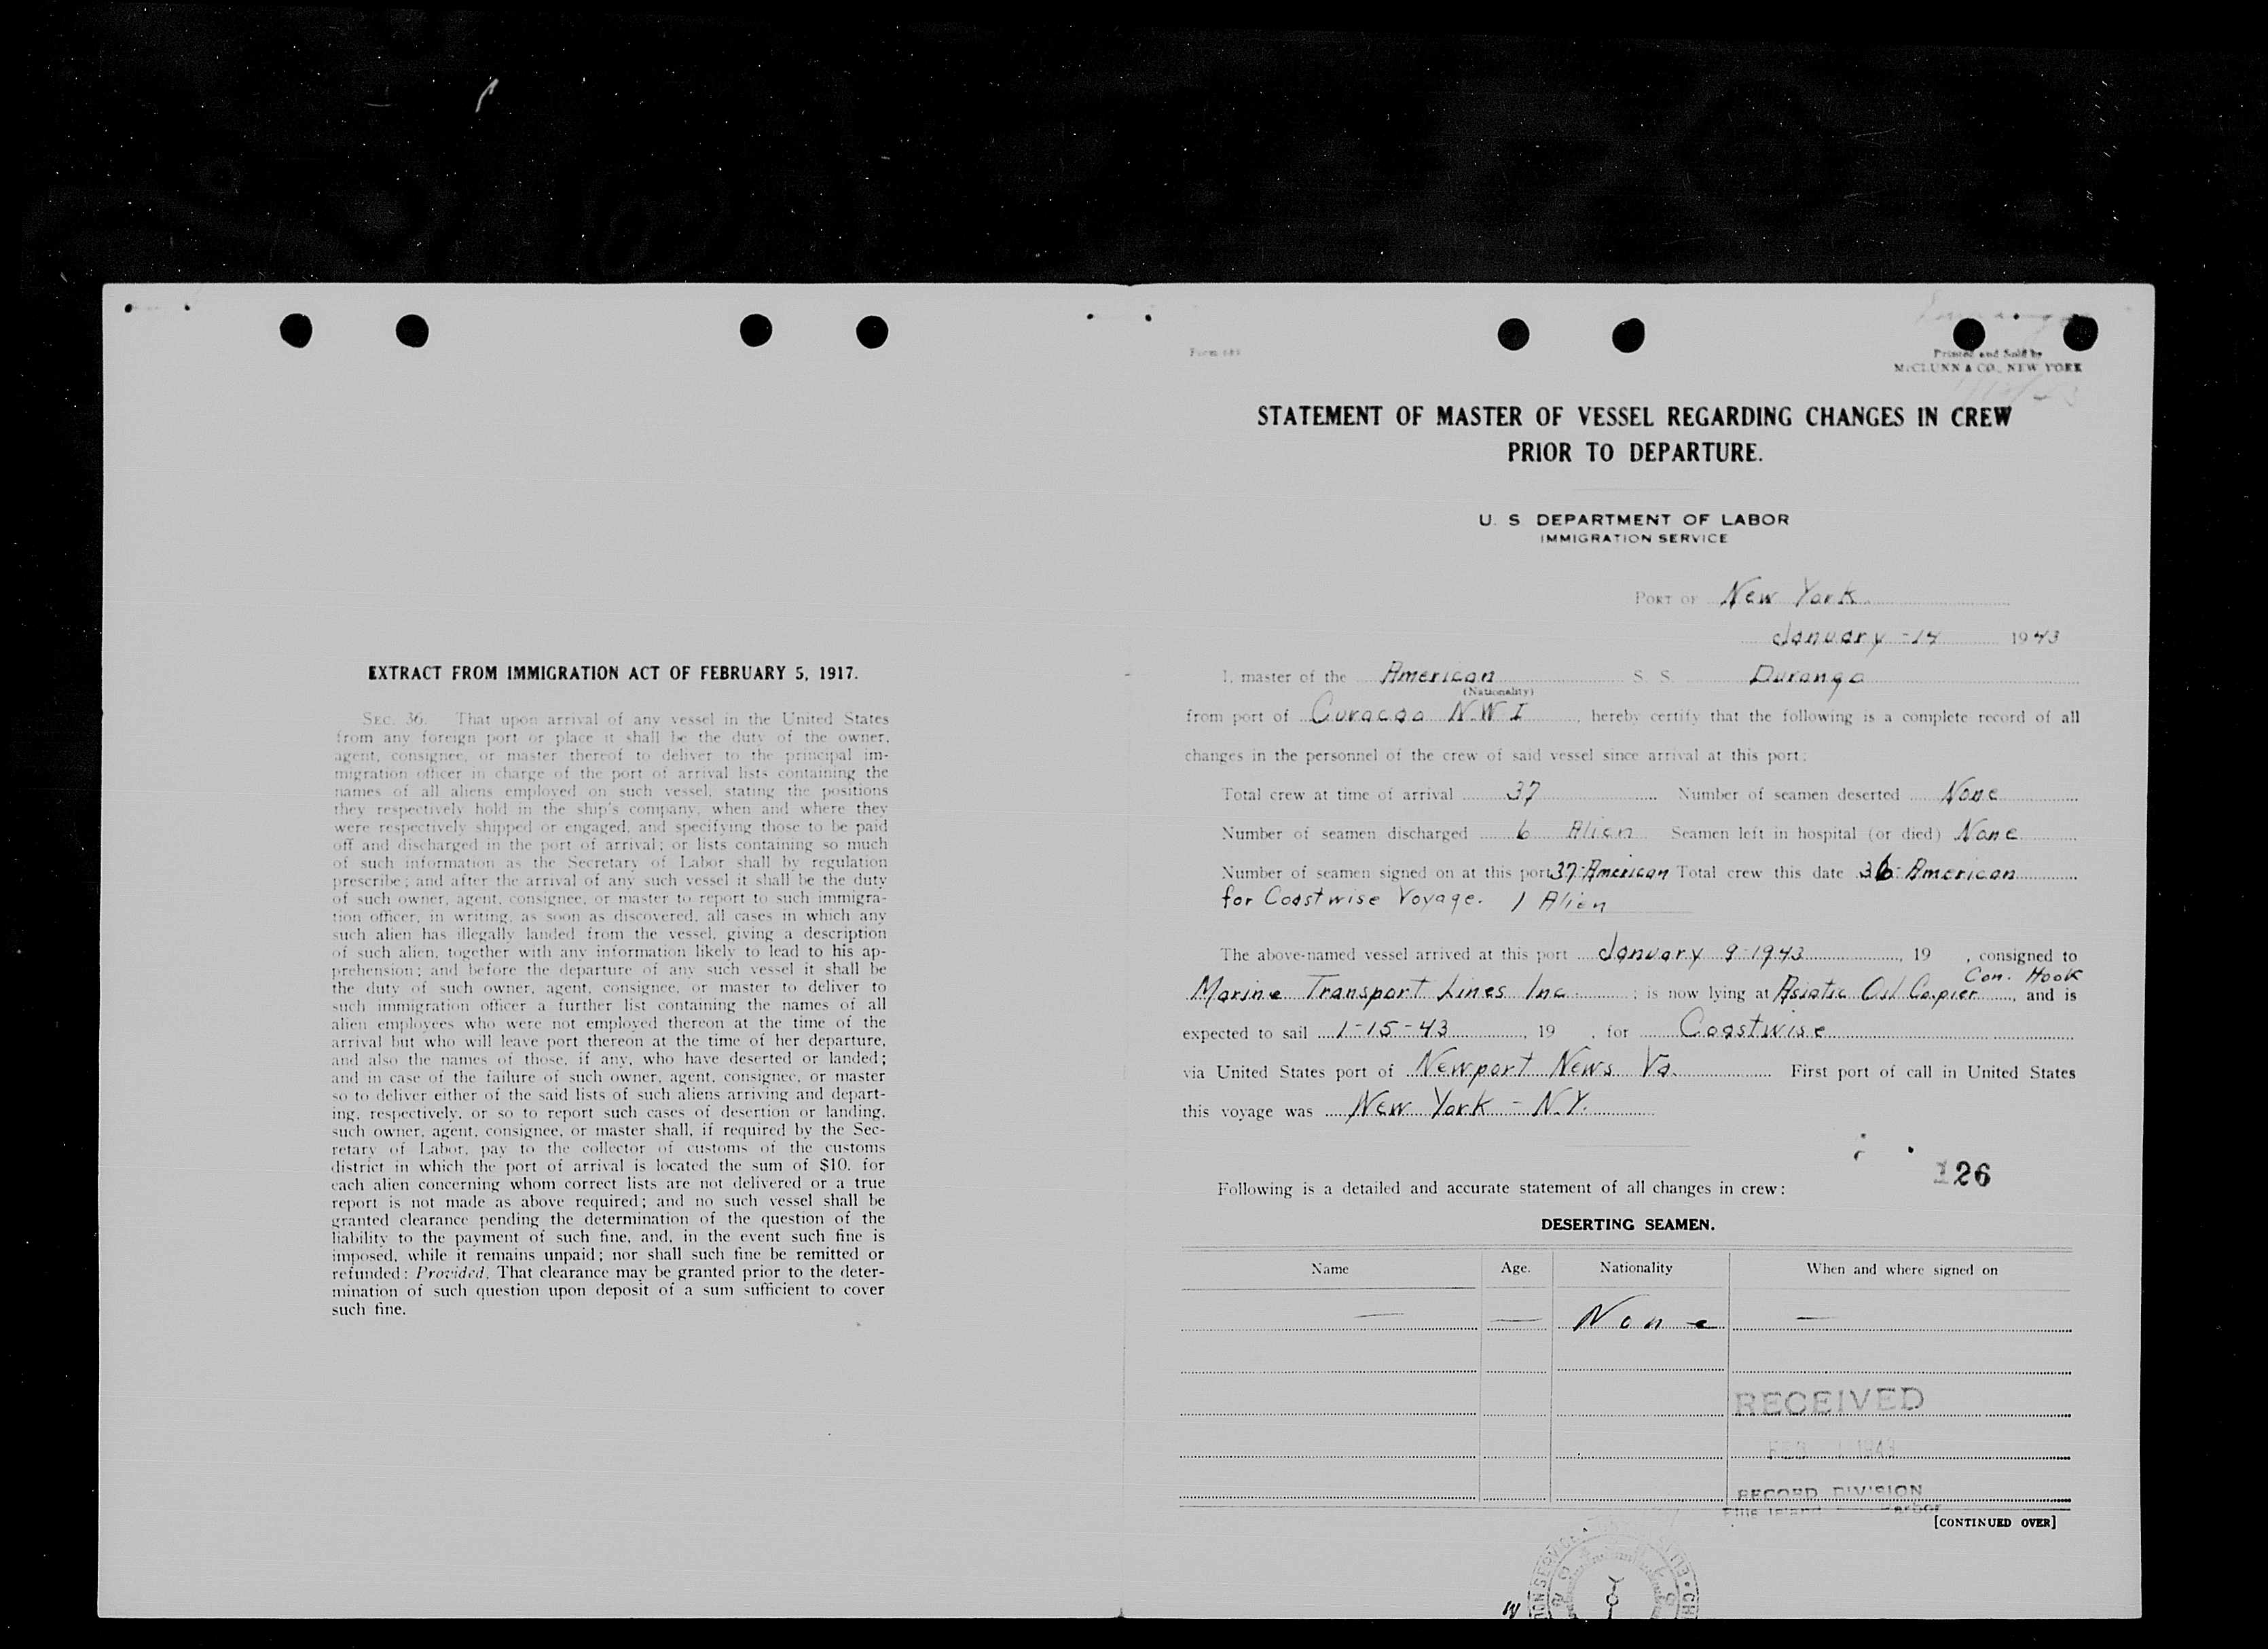 EXTRACT FROM IMMIGRATION ACT OF FEBRUARY 5, 1917.
SEC. 36. That upon arrival of any vessel in the United States
from any foreign port or place it shall be the duty of the owner,
agent, consignee, or master thereof to deliver to the principal im-
migration officer in charge of the port of arrival lists containing the
names of all aliens employed on such vessel, stating the positions
they respectively hold in the ship's company, when and where they
were respectively shipped or engaged, and specifying those to be paid
off and discharged in the port of arrival; or lists containing so much
of such information as the Secretary of Labor shall by regulation
prescribe; and after the arrival of any such vessel it shall be the duty
of such owner, agent, consignee, or master to report to such immigra-
tion officer, in writing, as soon as discovered, all cases in which any
such alien has illegally landed from the vessel, giving a description
of such alien, together with any information likely to lead to his ap-
prehension; and before the departure of any such vessel it shall be
the duty of such owner, agent, consignee, or master to deliver to
such immigration officer a further list containing the names of all
alien employees who were not employed thereon at the time of the
arrival but who will leave port thereon at the time of her departure,
and also the names of those, if any, who have deserted or landed;
and in case of the failure of such owner, agent, consignee, or master
so to deliver either of the said lists of such aliens arriving and depart-
ing, respectively, or so to report such cases of desertion or landing,
such owner, agent, consignee, or master shall, if required by the Sec-
retary of Labor, pay to the collector of customs of the customs
district in which the port of arrival is located the sum of $10. for
each alien concerning whom correct lists are not delivered or a true
report is not made as above required; and no such vessel shall be
granted clearance pending the determination of the question of the
liability to the payment of such fine, and, in the event such fine is
imposed, while it remains unpaid; nor shall such fine be remitted or
refunded: Provided, That clearance may be granted prior to the deter-
mination of such question upon deposit of a sum sufficient to cover
such fine.
Form 689
Printed and Sold by
McCLUNN & CO., NEW YORK
STATEMENT OF MASTER OF VESSEL REGARDING CHANGES IN CREW
PRIOR TO DEPARTURE.
U. S DEPARTMENT OF LABOR
IMMIGRATION SERVICE
PORT OF New York
January -14 1943
I, master of the American S. S. Durango
(Nationality)
from port of Curacao N.W I , hereby certify that the following is a complete record of all
changes in the personnel of the crew of said vessel since arrival at this port:
Total crew at time of arrival 37 Number of seamen deserted None
Number of seamen discharged 6 Alien Seamen left in hospital (or died) None
Number of seamen signed on at this port 37-American Total crew this date 36-American
for Coastwise Voyage. 1 Alien
The above-named vessel arrived at this port January 9-1943, 19 , consigned to
Con. Hook
Marine Transport Lines Inc. ; is now lying at Asiatic Oil Co. pier, and is
expected to sail 1-15-43, 19 , for Coastwise
via United States port of Newport News Va. First port of call in United States
this voyage was New York - N.Y.
126
Following is a detailed and accurate statement of all changes in crew:
DESERTING SEAMEN.
Name Age. Nationality When and where signed on
— — None —
RECEIVED
FEB 1 1943
RECORD DIVISION
Ellis Island Harbor
[CONTINUED OVER]